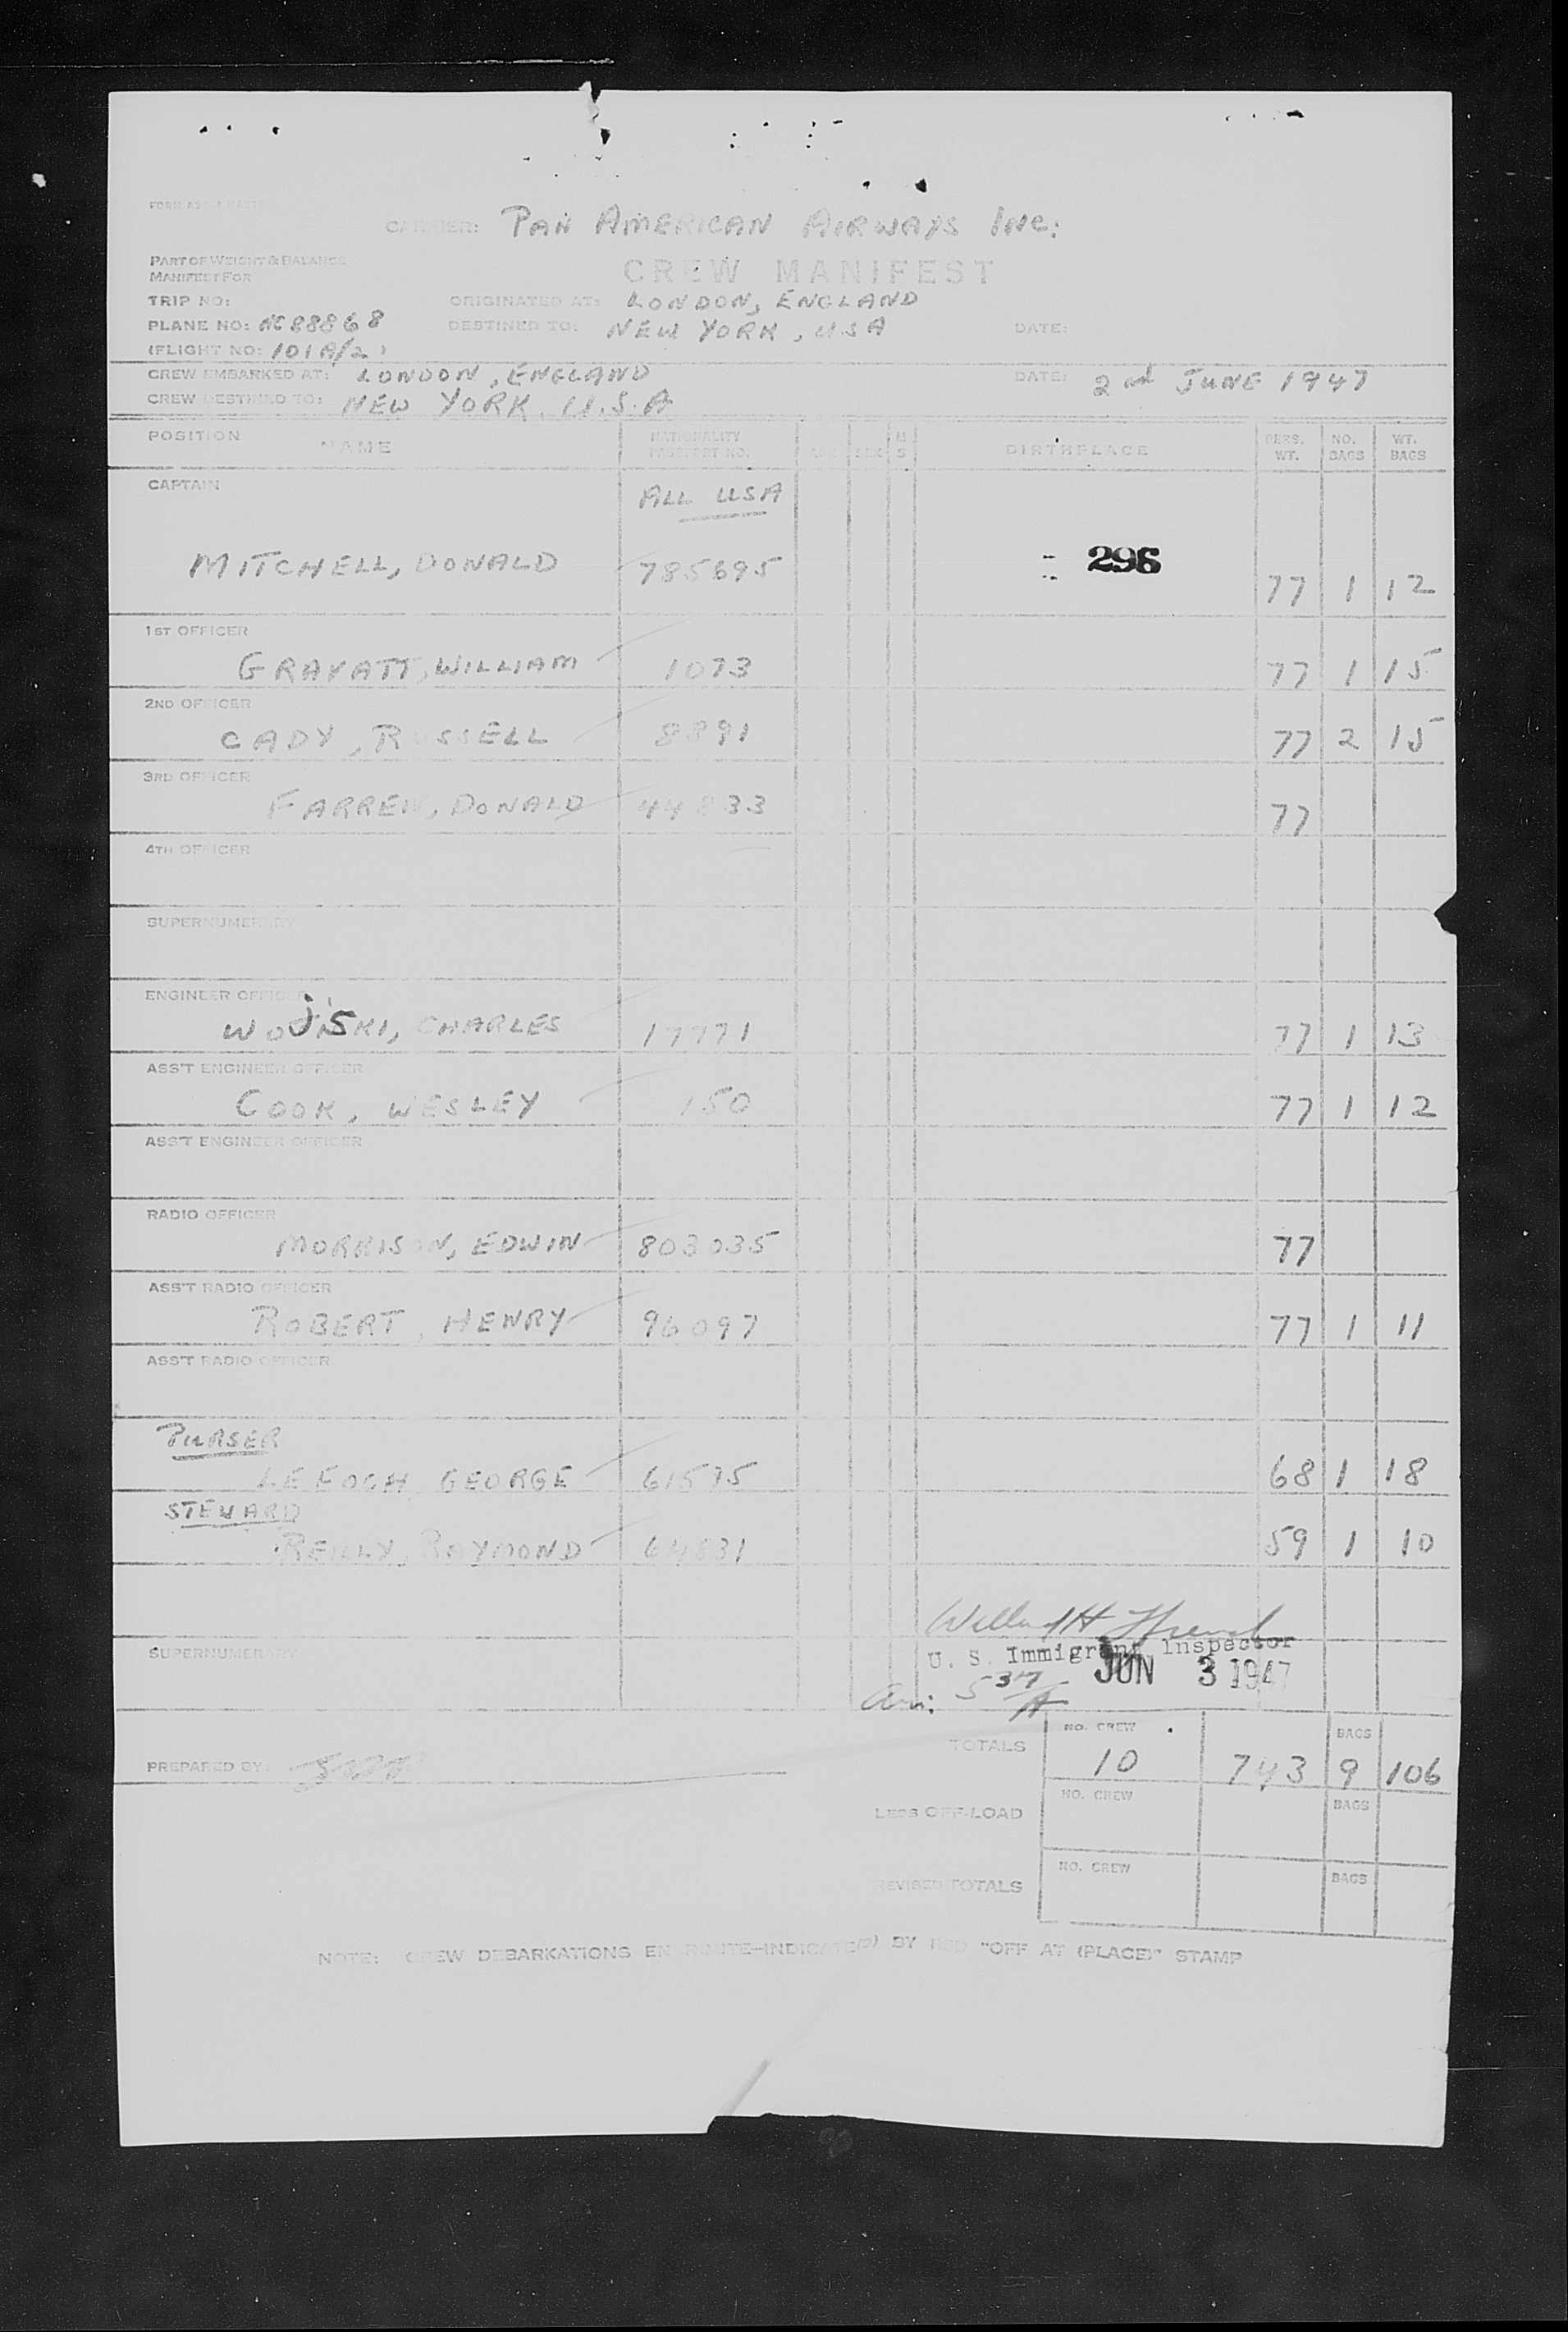 CARRIER: PAN AMERICAN AIRWAYS INC:
PART OF WEIGHT & BALANCE
MANIFEST FOR
CREW MANIFEST
TRIP NO: ORIGINATED AT: LONDON, ENGLAND
PLANE NO: NC88868 DESTINED TO: NEW YORK, USA DATE:
(FLIGHT NO: 101A/2)
CREW EMBARKED AT: LONDON, ENGLAND DATE: 2nd JUNE 1947
CREW DESTINED TO: NEW YORK, U.S.A
POSITION NAME NATIONALITY PASSPORT NO. AGE SEX M S BIRTHPLACE PERS. WT. NO. BAGS WT. BAGS
CAPTAIN ALL USA
MITCHELL, DONALD 785695 296 77 1 12
1ST OFFICER
GRAVATT, WILLIAM 1073 77 1 15
2ND OFFICER
CADY, RUSSELL 8891 77 2 15
3RD OFFICER
FARREN, DONALD 44833 77
4TH OFFICER
SUPERNUMERARY
ENGINEER OFFICER
CHARLES 17771 77 1 13
ASS'T ENGINEER OFFICER
COOK, WESLEY 150 77 1 12
ASS'T ENGINEER OFFICER
RADIO OFFICER
MORRISON, EDWIN 803035 77
ASS'T RADIO OFFICER
ROBERT, HENRY 96097 77 1 11
ASS'T RADIO OFFICER
PURSER
GEORGE 61575 68 1 18
STEWARD
REILLY, RAYMOND 64831 59 1 10
U. S. Immigrant Inspector
SUPERNUMERARY JUN 3 1947
Arr: 5 37/A
TOTALS NO. CREW 10 743 BAGS 9 106
PREPARED BY:
LESS OFF-LOAD NO. CREW BAGS
REVISED TOTALS NO. CREW BAGS
NOTE: CREW DEBARKATIONS EN ROUTE—INDICATE(D) BY RED "OFF AT (PLACE)" STAMP